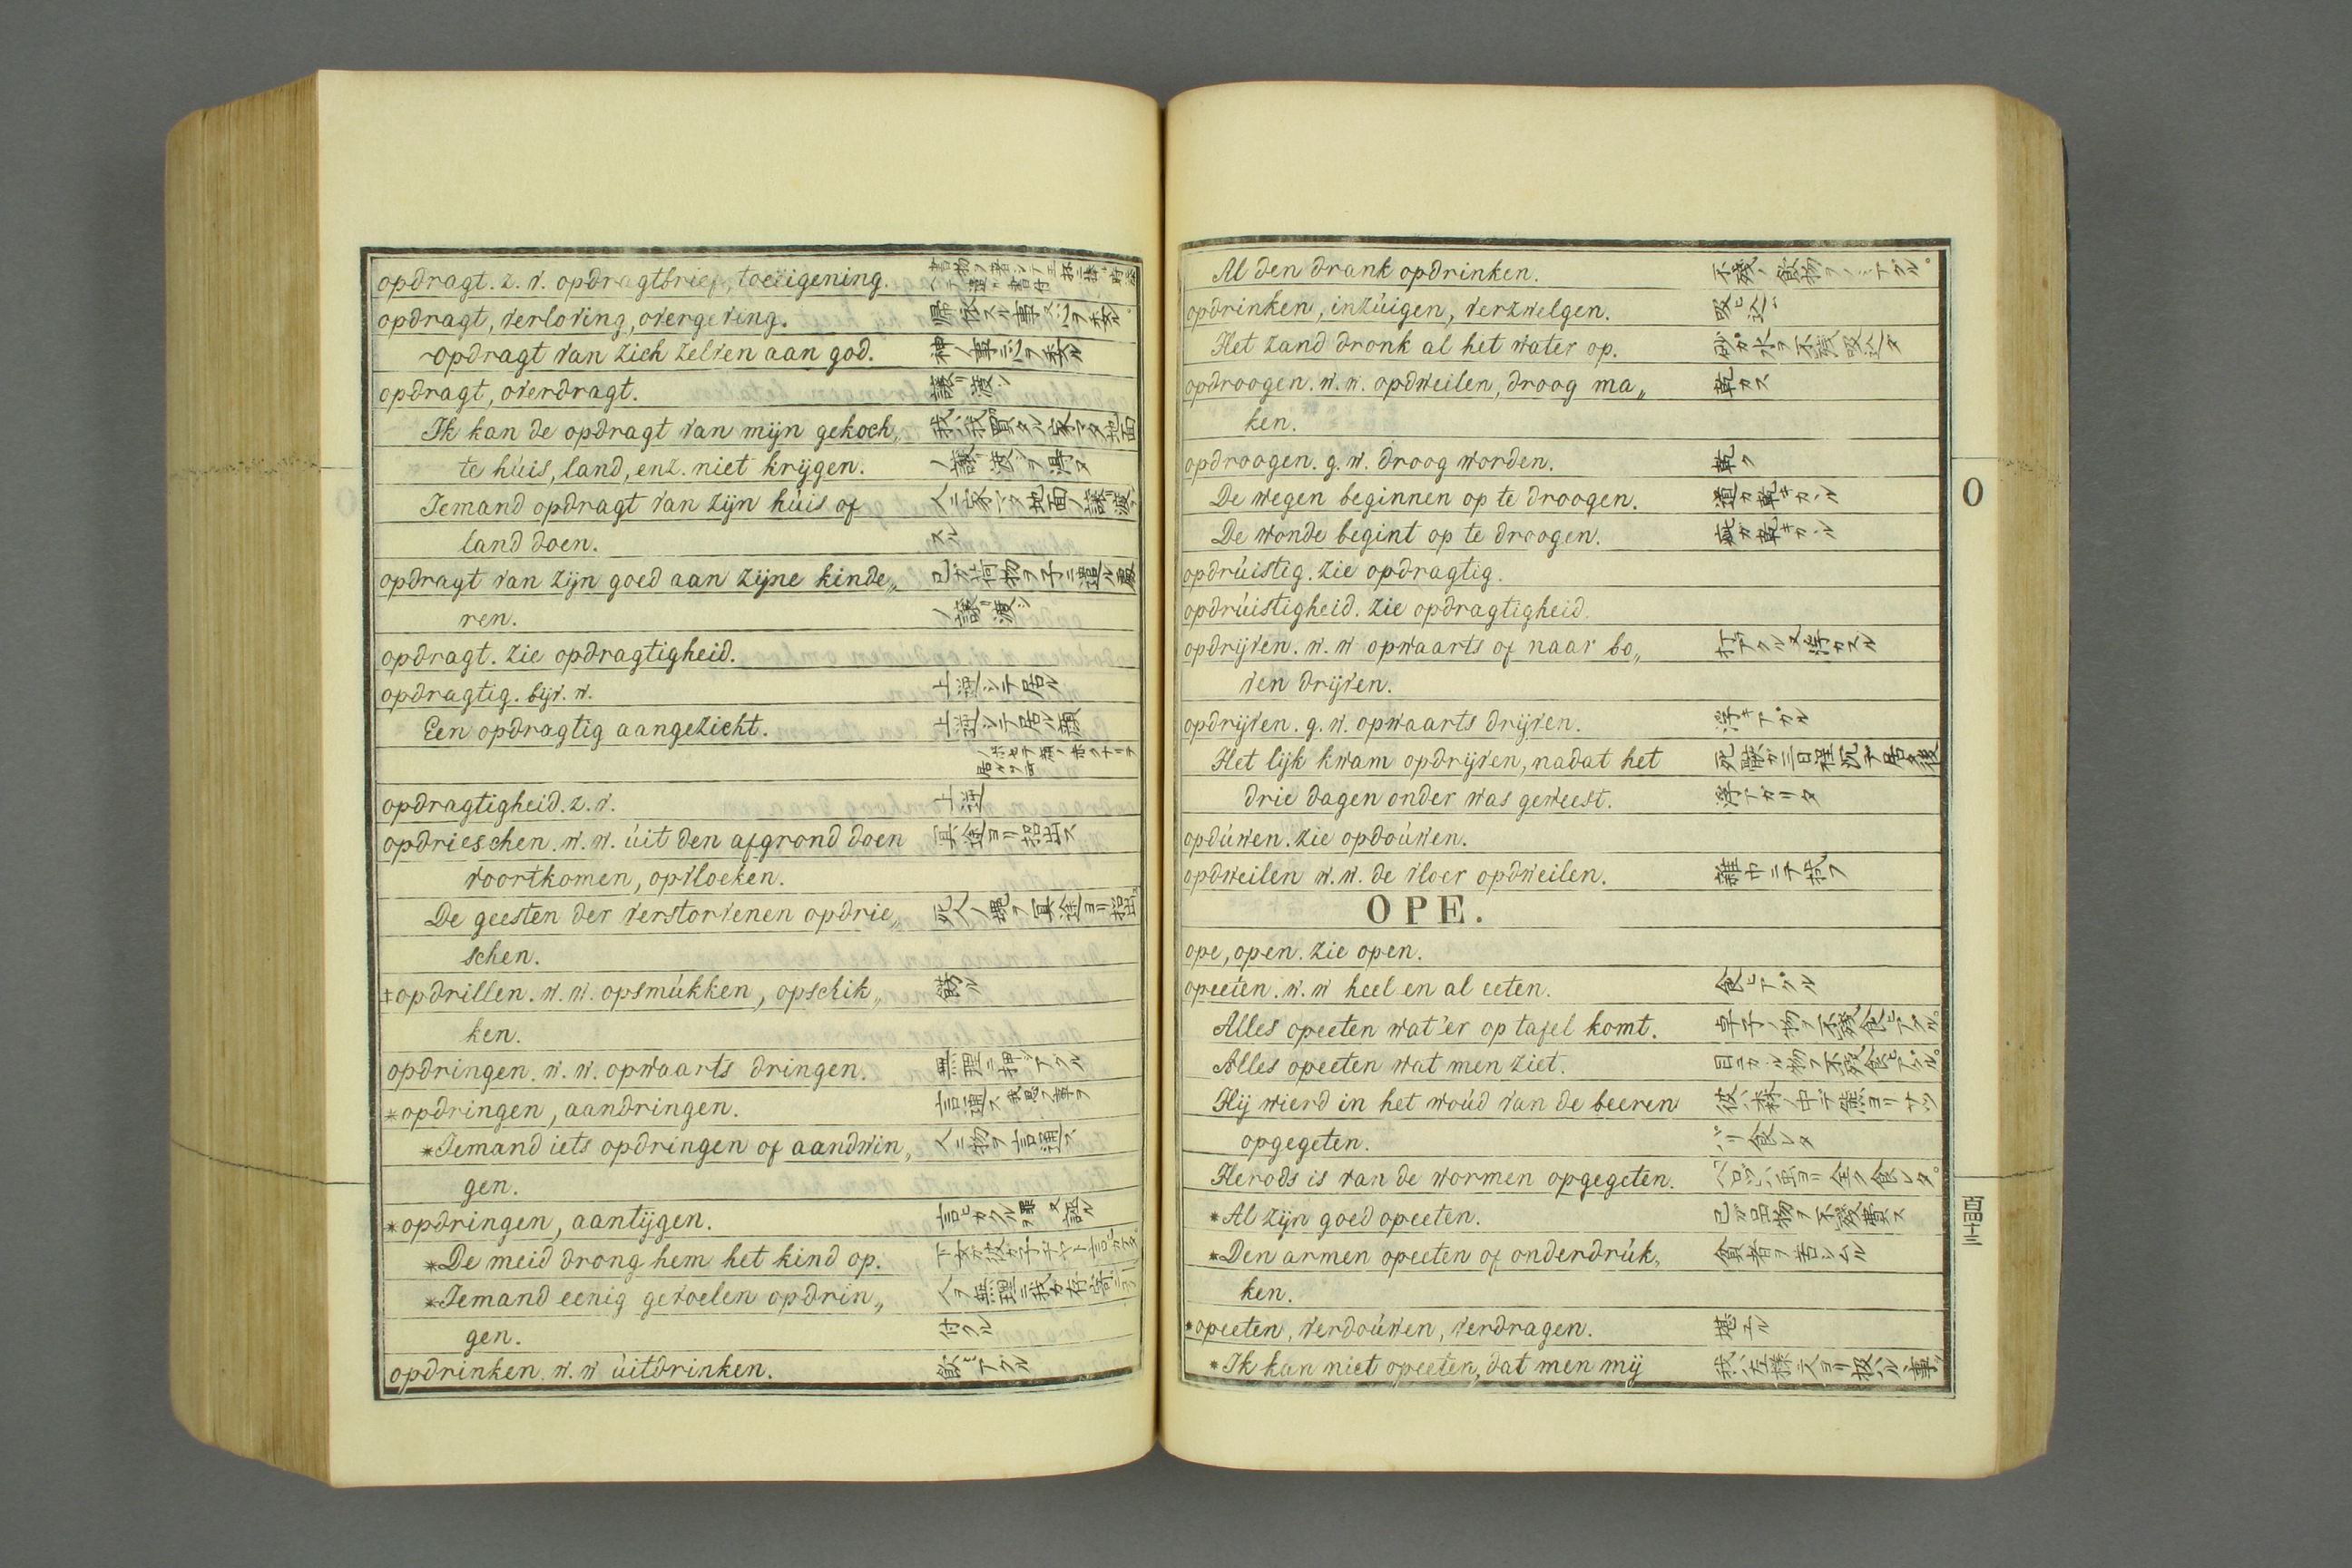 opdragt. z. v. opdragtbrief, toeëigening.
opdragt, verloving, overgeving. 帰依スル事
opdragt van zich zelven aan god.
opdragt, overdragt. 譲リ渡シ
Ik kan de opdragt van mijn gekoch„
te húis, land, enz. niet krijgen. ノ譲リ渡シヲ得ヌ
Iemand opdragt van zijn húis of
land doen. スル
opdragt van zijn goed aan zijne kinde„
ren. ノ譲リ渡シ
opdragt. zie opdragtigheid.
opdragtig. bijv. w. 上逆シテ居ル
Een opdragtig aangezicht. 上逆シテ居ル顔
opdragtigheid. z. v. 上逆
opdrieschen. w. w. úit den afgrond doen 冥途ヨリ招出ス
voortkomen, opvloeken.
De geesten der verstorvenen opdrie„ 死人ノ魂ヲ冥途ヨリ招出ス
schen.
‡opdrillen. w. w. opsmúkken, opschik„ 飾ル
ken.
opdringen. w. w. opwaarts dringen. 無理ニ押シアクル
*opdringen, aandringen. 言通ス
*Iemand iets opdringen of aandwin„ 人ニ物ヲ言通ス
gen.
*opdringen, aantijgen.
*De meid drong hem het kind op.
*Iemand eenig gevoelen opdrin„
gen. 付クル
opdrinken. w. w úitdrinken. 飲ミアグル
Al den drank opdrinken.
opdrinken, inzúigen, verzwelgen. 吸ヒ込ム
Het zand dronk al het water op. 砂ガ水ヲ不残吸込タ
opdroogen. w. w. opdweilen, droog ma„ 乾カス
ken.
opdroogen. g. w. droog worden. 乾ク
De wegen beginnen op te droogen. 道ガ乾キカヽル
De wonde begint op te droogen. 疵ガ乾キカヽル
opdrúistig. zie opdragtig.
opdrúistigheid. zie opdragtigheid.
opdrijven. w. w opwaarts of naar bo„
ven drijven.
opdrijven. g. w. opwaarts drijven. 浮キアガル
Het lijk kwam opdrijven, nadat het 死骸ガ三日程沉テ居タ後
drie dagen onder was geweest. 浮アガリタ
opdúwen. zie opdoúwen.
opdweilen w. w. de vloer opdweilen. 雑巾ニテ拭フ
OPE.
ope, open. zie open.
opeeten. w. w heel en al eeten. 食ヒアグル
Alles opeeten wat'er op tafel komt. 卓子ノ物ヲ不残食ヒアグル。
Alles opeeten wat men ziet. 目ニカヽル物ヲ不残食ヒアグル。
Hij wierd in het woúd van de beeren 彼ハ森ノ中デ熊ヨリサッ
opgegeten. パリ食レタ
Herods is van de wormen opgegeten.
*Al zijn goed opeeten. 己ガ品物ヲ不残費ス
*Den armen opeeten of onderdrúk„ 貧者ヲ苦シムル
ken.
*opeeten, verdoúwen, verdragen. 堪エル
*Ik kan niet opeeten, dat men mij
O
百四十三